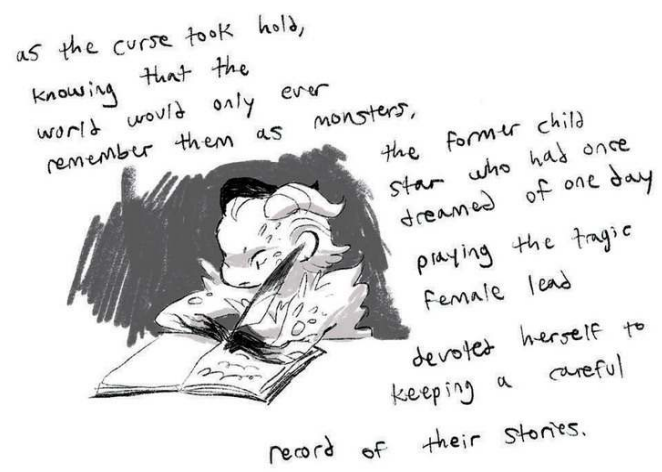 as the curse took hold,
knowing that the
world would only ever
remember them as monsters,
the former child
star who had once
dreamed of one day
playing the tragic
female lead
devoted herself to
keeping a careful
record of their stories.